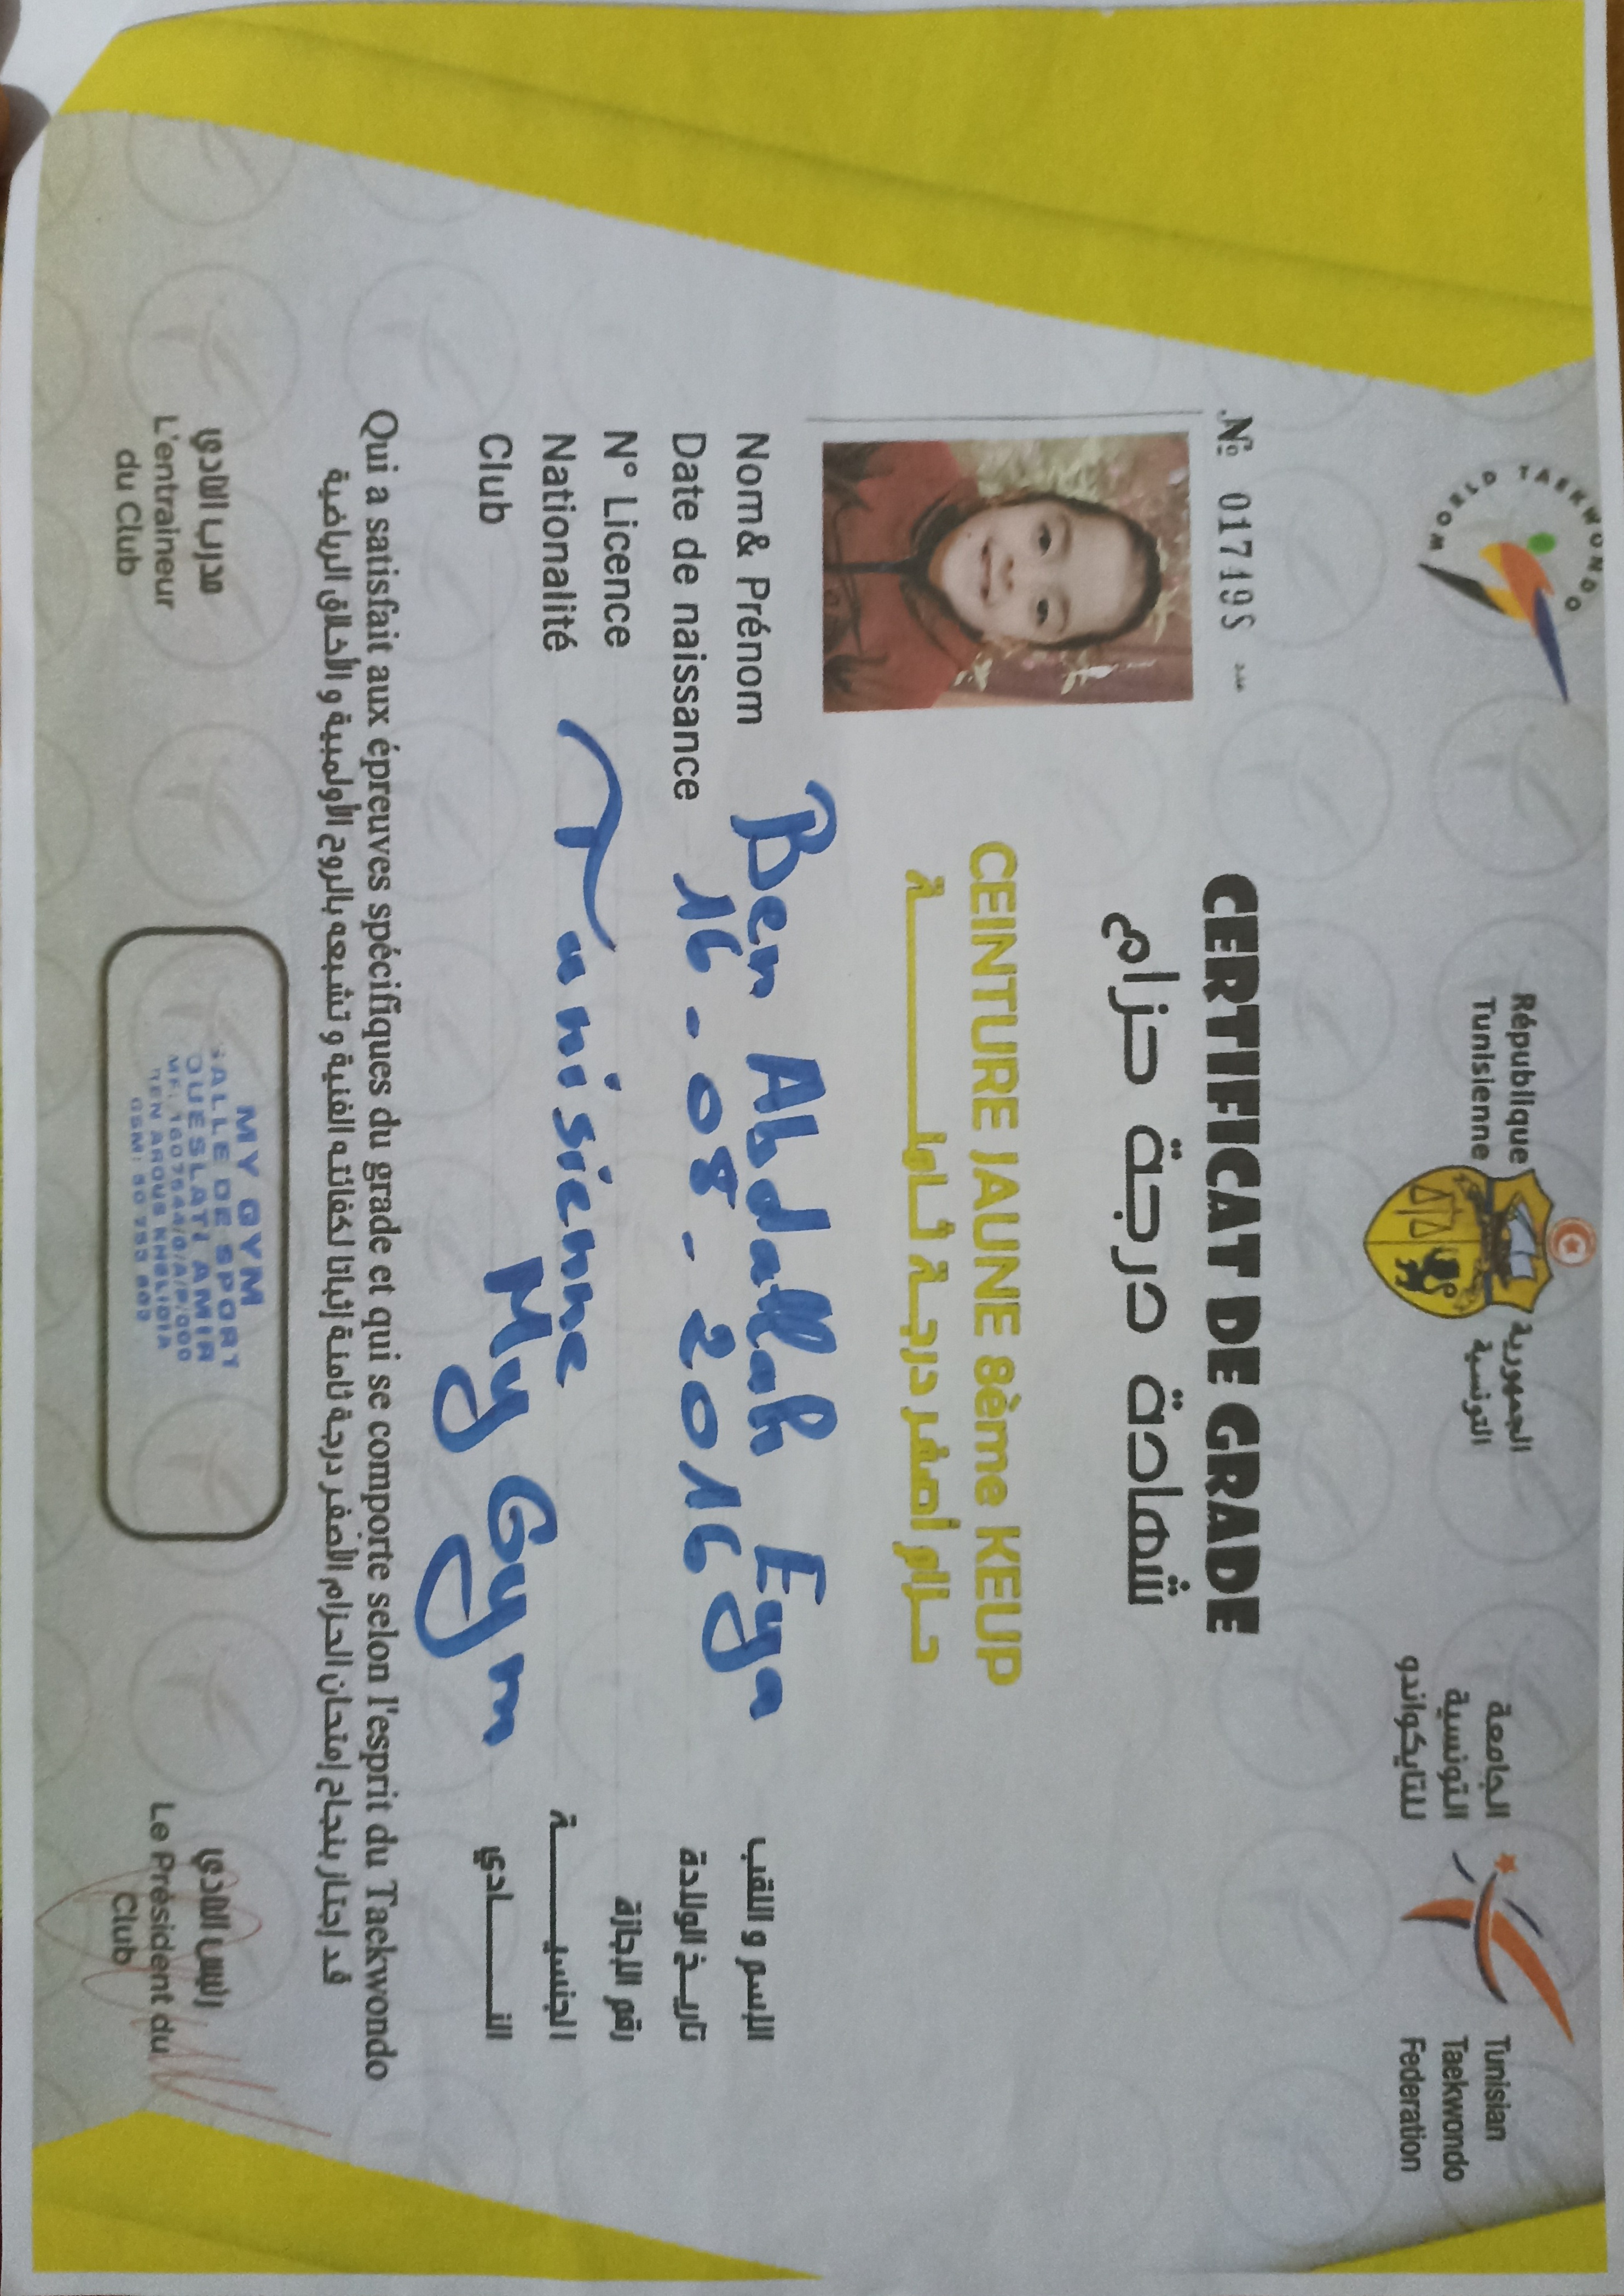 WORLD TAEKWONDO
République
Tunisienne
الجمهورية
التونسية
الجامعة
التونسية
للتايكواندو
Tunisian
Taekwondo
Federation
№ 017495 عدد
CERTIFICAT DE GRADE
شهادة درجة حزام
CEINTURE JAUNE 8ème KEUP
حـزام أصفـر درجـة ثـامنـــــة
Nom& Prénom Ben Abdallah Eya الإسم و اللقب
Date de naissance 16-08-2016 تاريـخ الولادة
N° Licence رقم الإجازة
Nationalité Tunisienne الجنسيـــــة
Club My Gym النـــــادي
Qui a satisfait aux épreuves spécifiques du grade et qui se comporte selon l'esprit du Taekwondo
قد إجتاز بنجاح إمتحان الحزام الأصفر درجة ثامنة إثباتا لكفائته الفنية و تشبعه بالروح الأولمبية و الأخلاق الرياضية
مدرب النادي
L'entraineur
du Club
MY GYM
SALLE DE SPORT
OUESLATI AMIR
MF: 1607544/G/A/P/000
BEN AROUS KHELIDIA
GSM:
رئيس النادي
Le Président du
Club